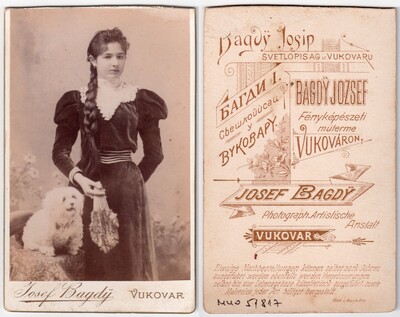 Josef Bagdÿ VUKOVAR
Bagdÿ Josip
SVETLOPISAC U VUKOVARU
БАГДИ I.
Свѣтлописац
у
ВУКОВАРУ
BAGDÿ JOZSEF
Fényképészeti
műterme
VUKOVÁRON.
JOSEF BAGDÿ
Photograph. Artistische
Anstalt
VUKOVAR
MUO 51817